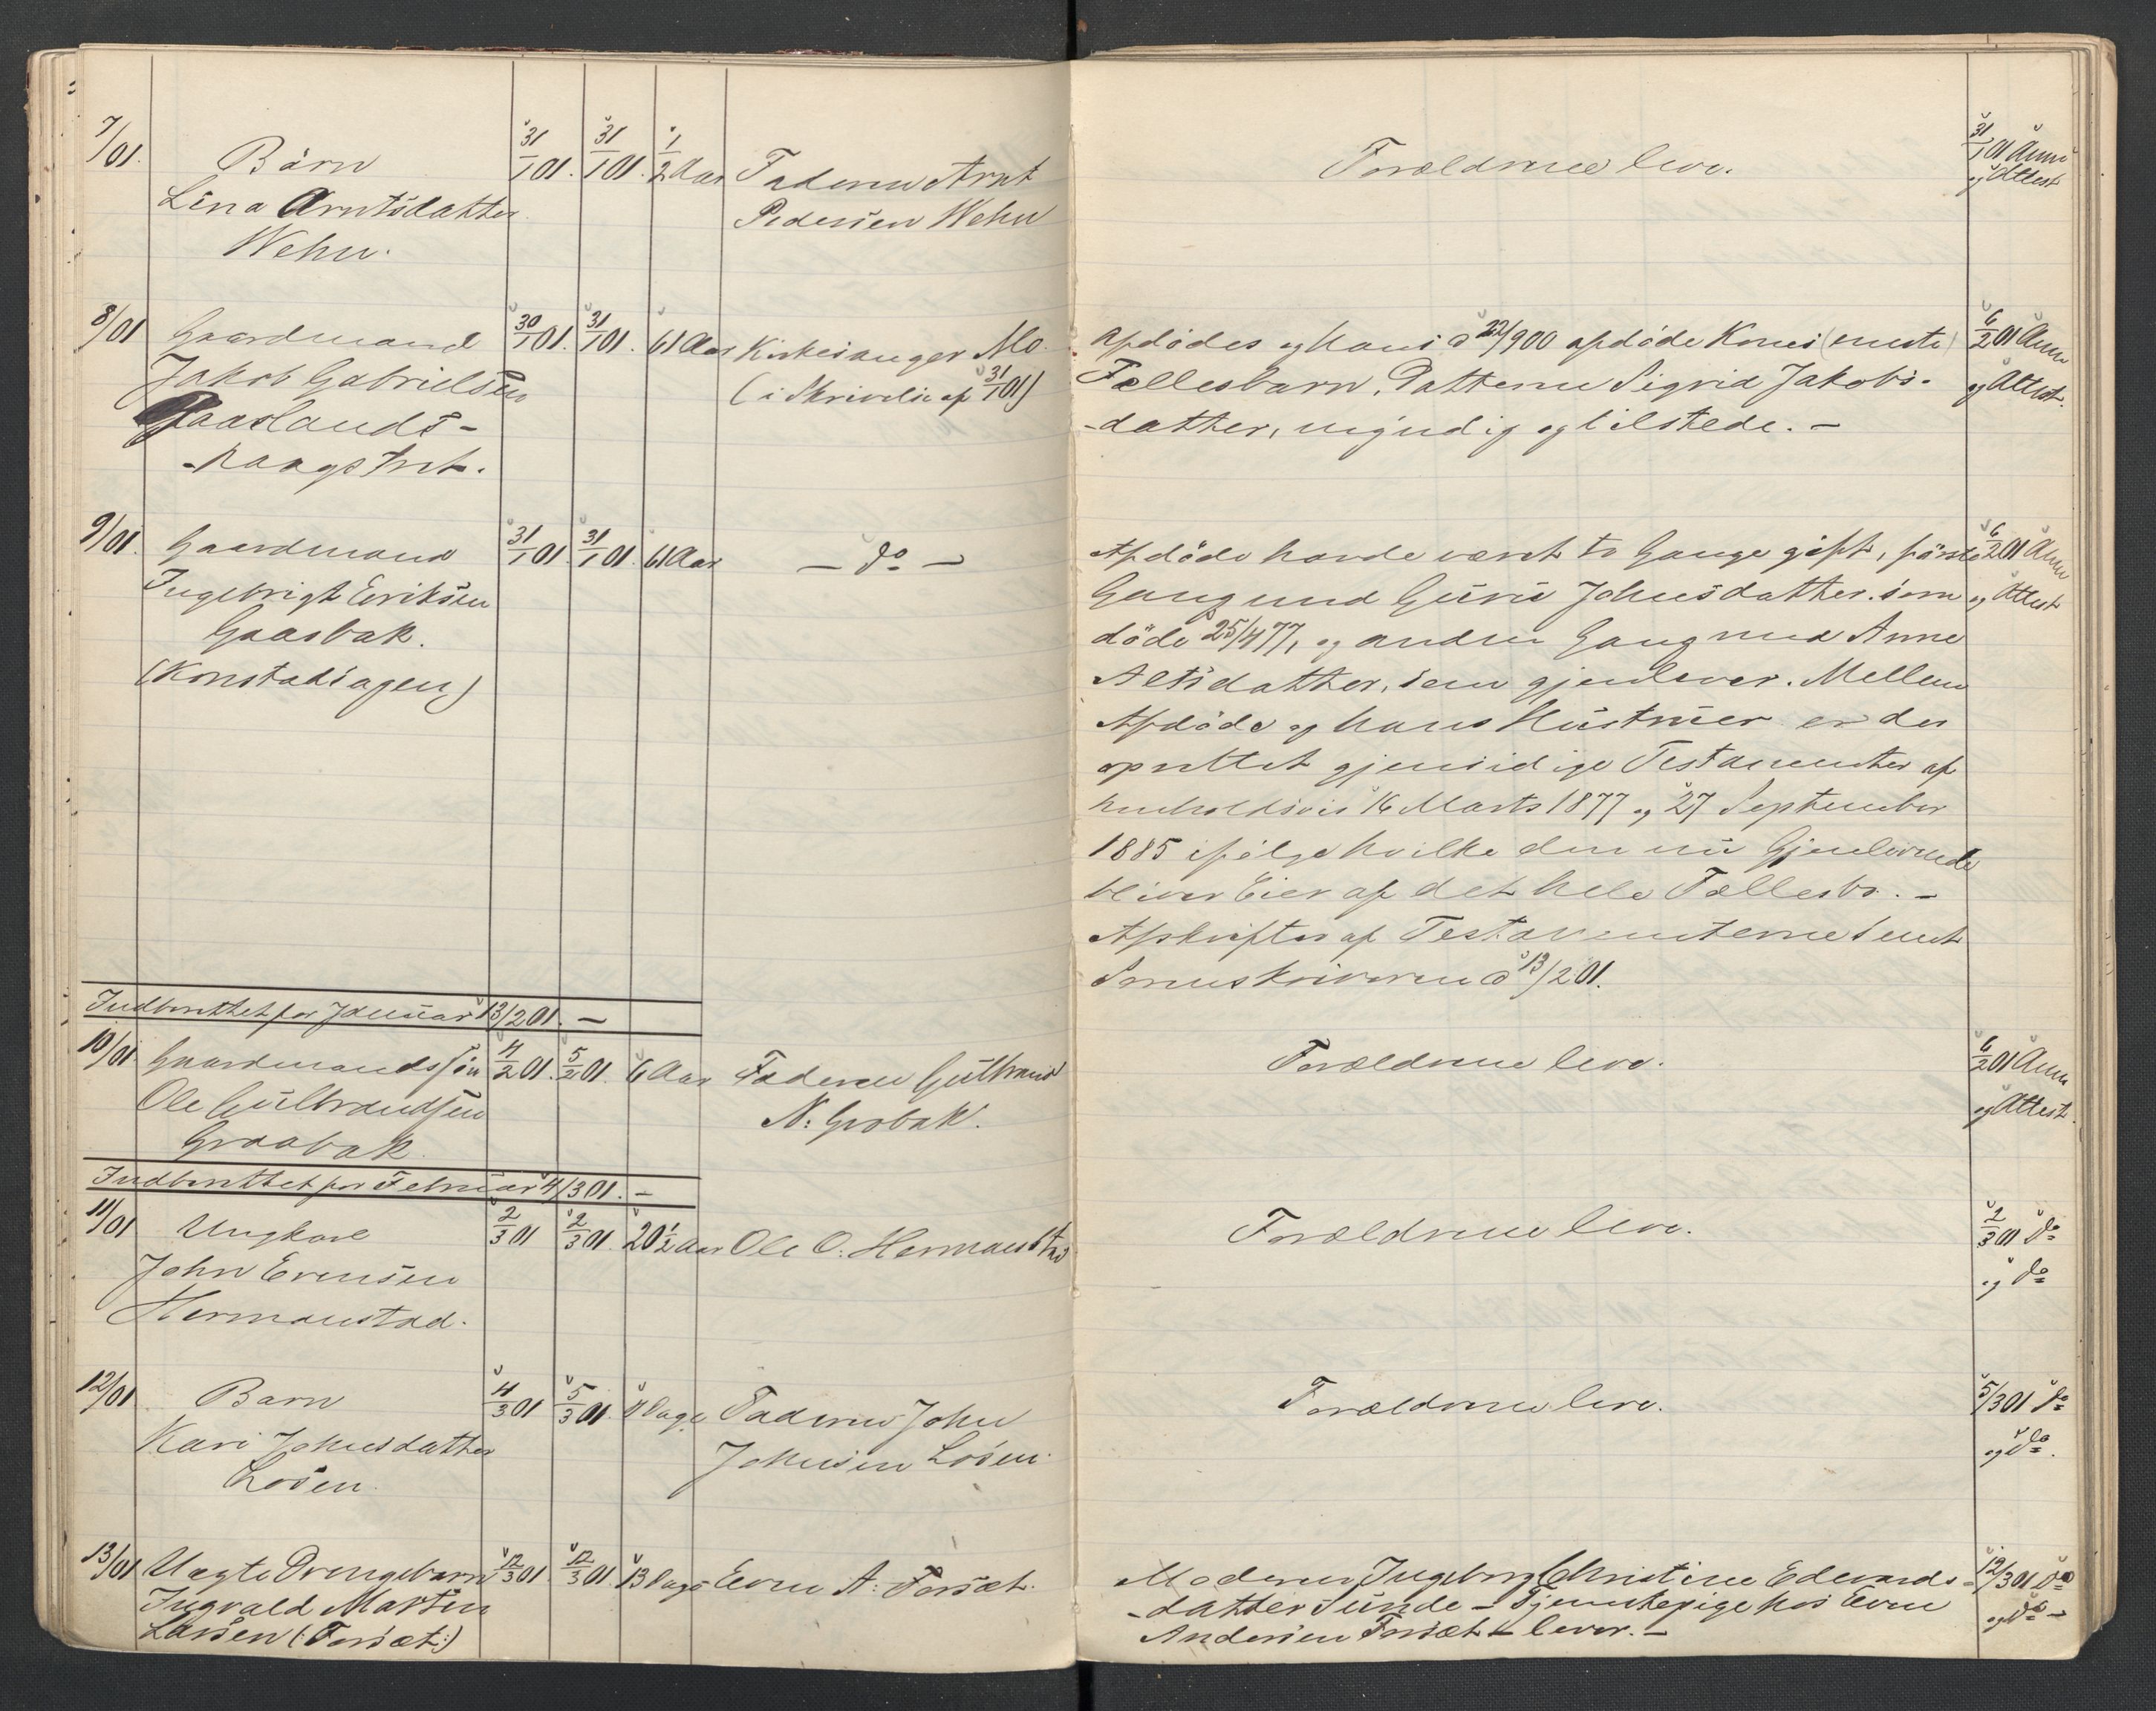 7/01. Barn 31/1 01. 31/1 01. 1/2 Aar Faderen Arnt Forældrene leve. 31/1 01 Anm
Lina Arntsdatter Pedersen Wehn og Attest
Wehn.
8/01 Gaardmand 30/1 01. 31/1 01. 61 Aar Kirkesanger Mo Afdødes og hans d 22/ 900 afdøde Kones (eneste) 6/2 01 Anm
Jakob Gabrielsen (i Skrivelse af 31/1 01) Fællesbarn, Datteren Sigrid Jakobs- og Attest.
Gaaslands- -datter, myndig og tilstede. -
9/01. Gaardmand 31/1 01. 31/1 01. 61 Aar - do - Afdøde havde været to Gange gift, første 6/2 01 Anm
Ingebrigt Eriksen Gang med Guru Johnsdatter som og Attest
Gaasbak. døde 25/4 77, og anden Gang med Anne
(Konstadsagen) datter, som gjenlever. Mellem
Afdøde og hans Hustruer er der
oprettet gjensidige Testamenter af
henholdsvis 16 Marts 1877 og 27 September
1885 ifølge hvilke den nu Gjenlevende
bliver Eier af det hele Fællesbo. -
Afskrifter af Testamenterne sendt
Sorenskriveren d 13/2 01.
Indberettet for Januar 13/2 01. -
10/01 Gaardmandssøn 4/2 01. 5/2 01. 6 Aar Faderen Gulbrand Forældrene leve. 6/2 01 Anm
Ole Gulbrandsen N: Grobak. og Attest.
Graabak.
Indberettet for Februar 4/3 01. -
11/01 Ungkarl 2/3 01 2/3 01. 20 1/2 Aar Ole O. Hermanstad Forældrene leve. 2/3 01 do
John Evensen og do
Hermanstad.
12/01 Barn 4/3 01 5/3 01. Dage Faderen John Forældrene leve. 5/3 01 do
Kari Johnsdatter Johnsen Losen. og do.
Losen.
13/01 Uægte Drengebarn 12/3 01. 12/3 01. 13 Dage Even A: Forsæt. Moderen Ingeborg Christine Edvards- 12/3 01 do
Ingvald Martin -datter Sunde - Tjenestepige hos Even og do -
Larsen (: Forsæt :) Andersen Forsæt - lever. -